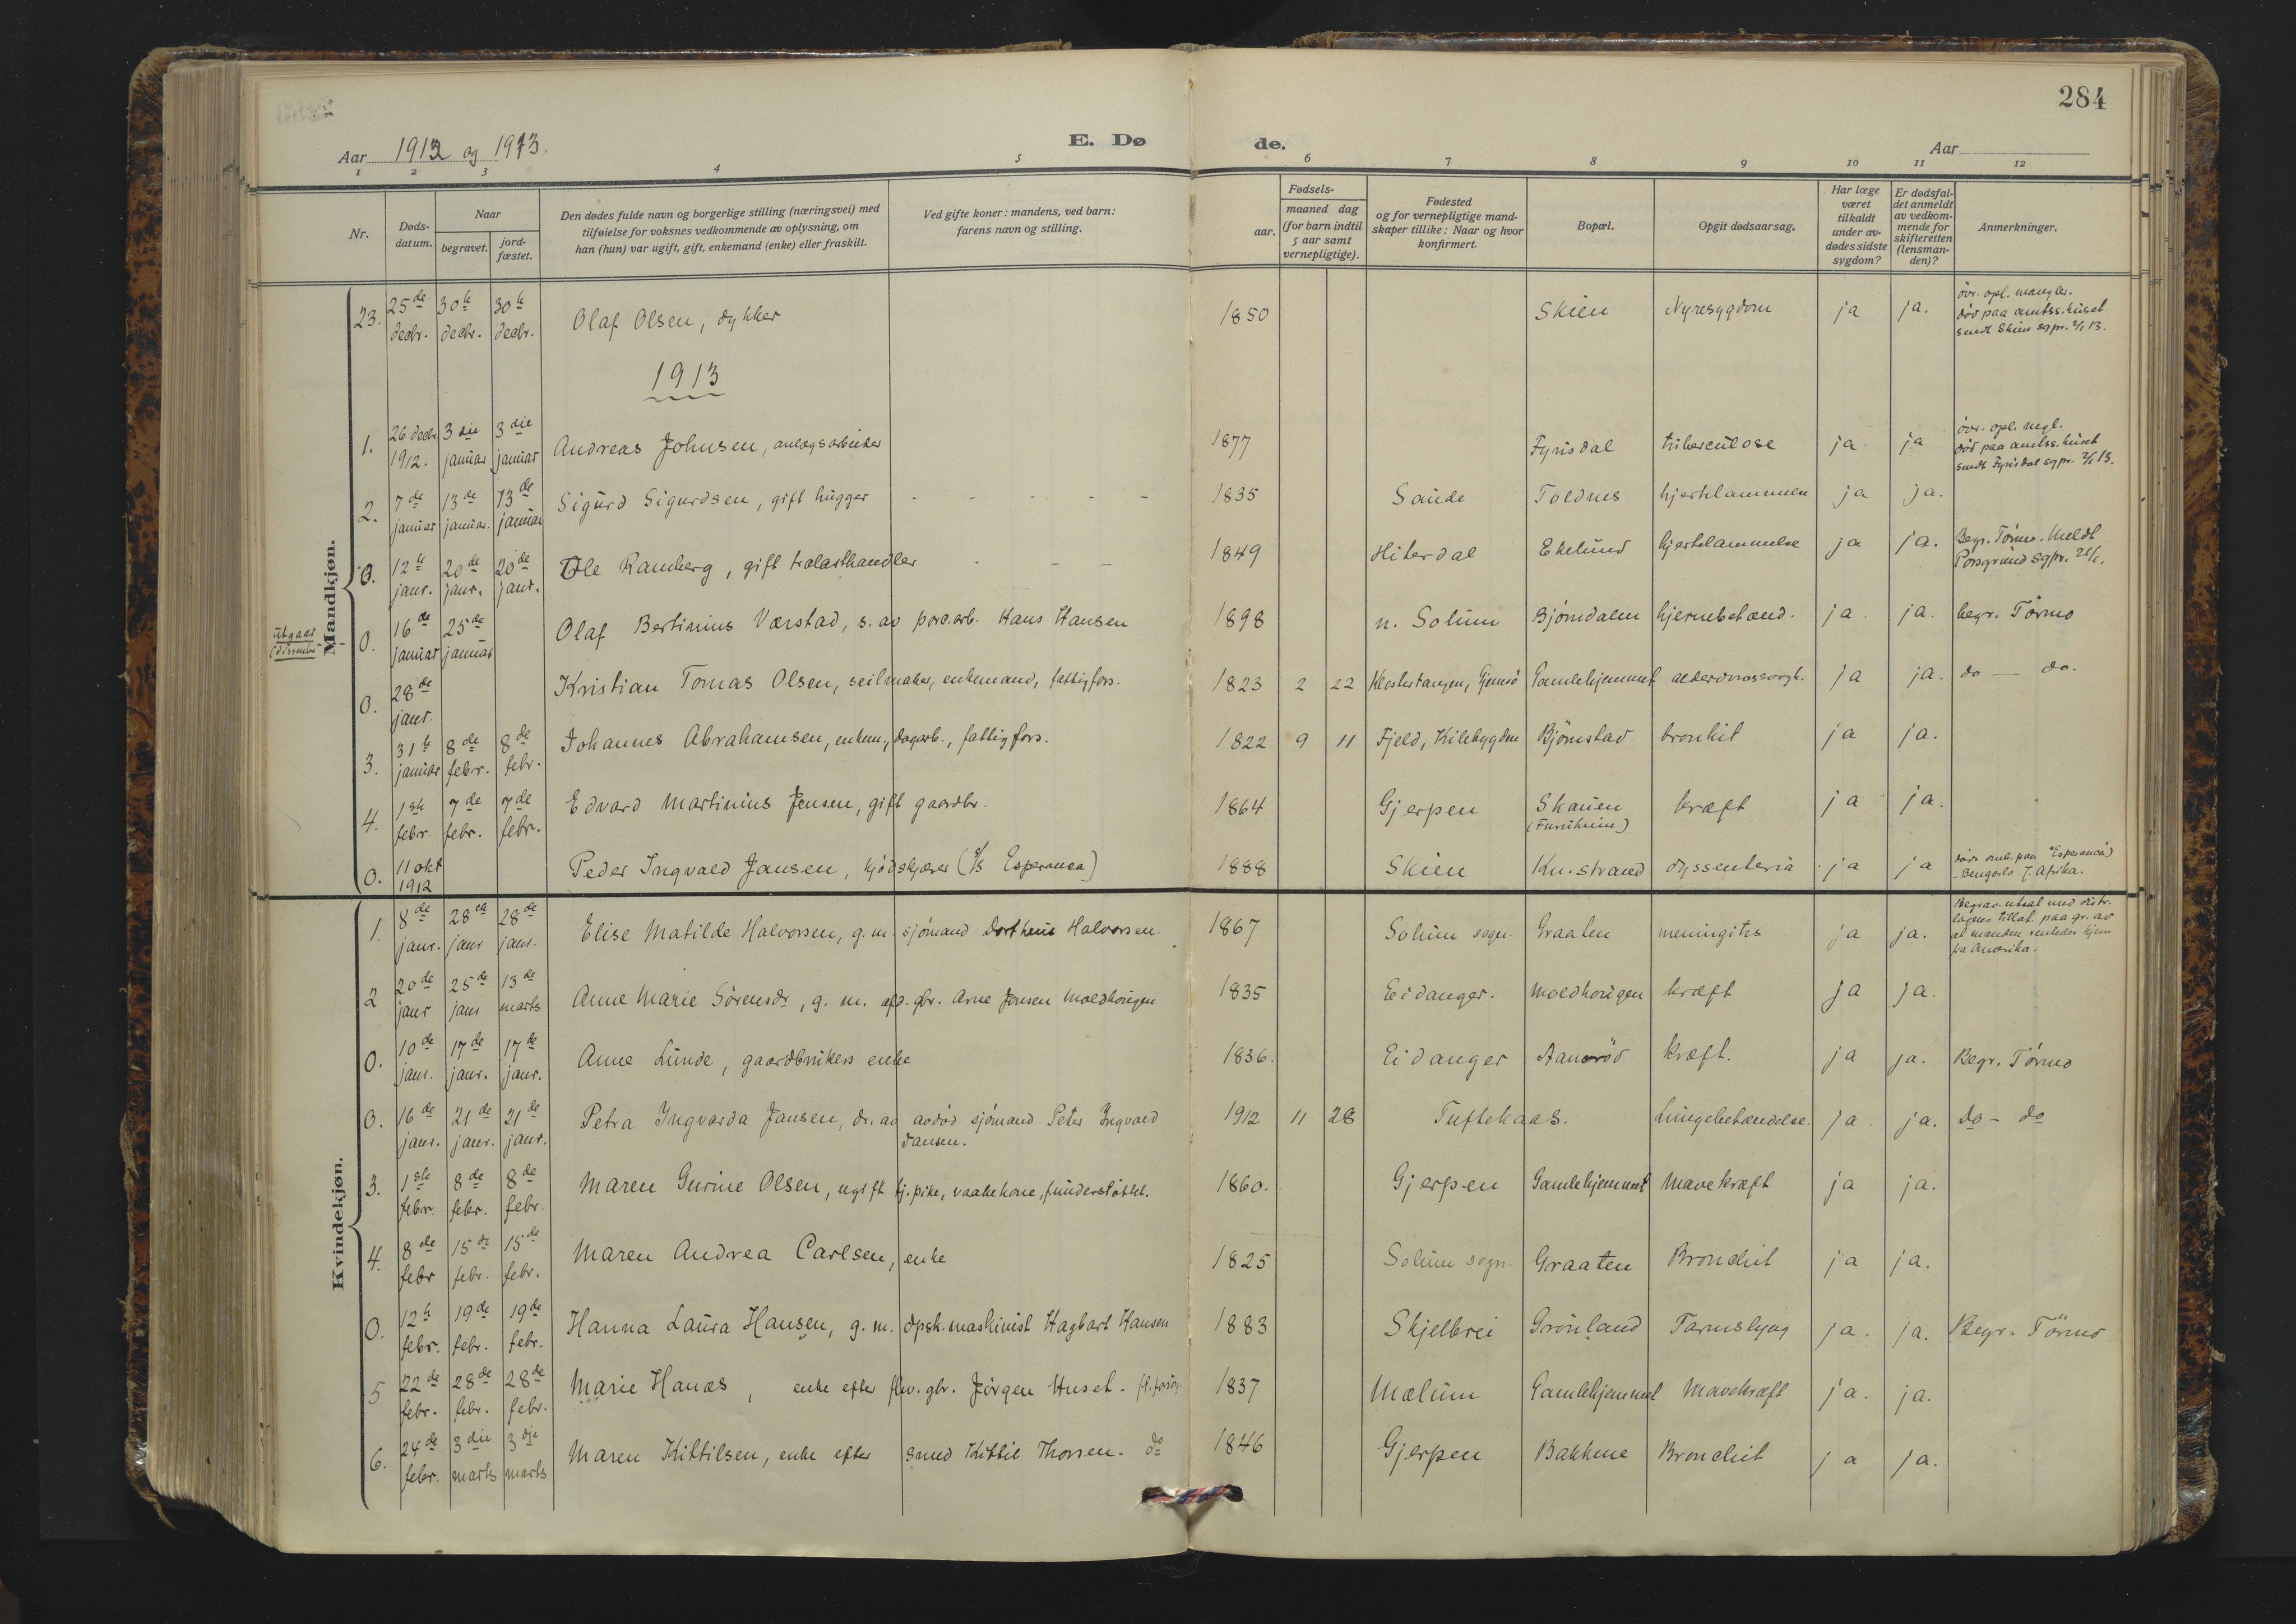 284
Aar 1912 og 1913.
E. Dø de.
Aar
1 2 3 4 5 6 7 8 9 10 11 12
Nr.
Døds-
datum.
Naar
begravet.
jord-
fæstet.
Den dødes fulde navn og borgerlige stilling (næringsvei) med
tilføielse for voksnes vedkommende av oplysning, om
han (hun) var ugift, gift, enkemand (enke) eller fraskilt.
Ved gifte koner: mandens, ved barn:
farens navn og stilling.
Fødsels-
aar.
maaned dag
(for barn indtil
5 aar samt
vernepligtige).
Fødested
og for vernepligtige mand-
skaper tillike: Naar og hvor
konfirmert.
Bopæl.
Opgit dødsaarsag.
Har læge
været
tilkaldt
under av-
dødes sidste
sygdom?
Er dødsfal-
det anmeldt
av vedkom-
mende for
skifteretten
(lensman-
den)?
Anmerkninger.
Mandkjøn.
23. 25de decbr. 30te decbr. 30te decbr. Olaf Olsen, dykker 1850 Skien Nyresygdom ja ja. övr. opl. mangler.
död paa amtss.huset
sendt Skien sgpr. 2/1 13.
1913
1. 26 decbr. 1912. 3die januar 3die januar Andreas Johnsen, anlægsarbeider 1877 Fyrisdal tuberculose ja ja övr. opl. mgl.
död paa amtss.huset
sendt Fyrisdal sgpr. 2/1 13.
2. 7de januar 13de januar. 13de januar Sigurd Sigurdsen, gift hugger - - - - - 1835 Saude Toldnes hjertelammelse ja ja.
0. 12te janr. 20de janr. 20de janr. Ole Ramberg, gift trælasthandler - - - 1849 Hiterdal Ekelund hjertelammelse ja ja. Begr. Törmo. Meldt
Porsgrund sgpr.
utgaar
(dissenter
0. 16de januar 25de januar Olaf Bertinius Værstad, s. av porc.arb. Hans Hansen 1898 n. Solum Bjørndalen hjernebetænd. ja ja. begr. Törmo
0. 28de janr. Kristian Tomas Olsen, seilmaker, enkemand, fattigfors. 1823 2 22 Klostertangen, Gjemsö Gamlehjemmet alderdomssvagh. ja ja. do — do.
3. 31te januar 8de febr. 8de febr. Johannes Abrahamsen, enkem., dagarb., fattigfors. 1822 9 11 Fjeld, Kilebygden Björnstad bronkit ja ja.
4. 1ste febr. 7de febr. 7de febr. Edvard Martinius Jensen, gift gaardbr. 1864 Gjerpen Skauen
(Furuheim) kræft ja ja.
0. 11 okt 1912 Peder Ingvald Jansen, kjødskjærer (s/s Esperanca) 1888 Skien Kn.strand dyssenteria ja ja döde omb. paa "Esperanca)
- Afrika.
Kvindekjøn.
1. 8de janr. 28de janr 28de janr. Elise Matilde Halvorsen, g. m. sjömand Halvorsen. 1867 Solum sogn. Graaten meningitis ja ja. Begrav. utsat med distr.
lægens tillat. paa gr. av
at manden ventedes hjem
fra Amerika.
2 20de janr 25de janr 13de marts Anne Marie Sörensdr, g. m. gbr. Arne Jensen Moldhougen 1835 Eidanger. Moldhougen kræft ja ja.
0. 10de janr. 17de janr. 17de janr. Anne Lunde, gaardbrukers enke 1836. Eidanger kræft. ja ja. Begr. Törmo
0. 16de janr. 21de janr. 21de janr. Petra Ingvarda Jansen, dr. av avdød sjömand Peter Ingvald
Jansen. 1912 11 28 Tuftekaas. Lungebetændelse. ja ja. do - do
3. 1ste febr. 8de febr. 8de febr. Maren Gurine Olsen, ugift tj.pike, vaakekone, f.understöttet. 1860. Gjerpen Gamlehjemmet Mavekræft ja ja.
4. 8de febr 15de febr. 15de febr. Maren Andrea Carlsen, enke 1825 Solum sogn. Graaten Bronchit ja ja.
0. 12te febr. 19de febr. 19de febr. Hanna Laura Hansen, g. m. dpsk.maskinist Hagbart Hansen 1883 Skjelbrei Grönland Tarmslyng ja. ja. Begr. Törmo
5 22de febr. 28de febr. 28de febr. Marie Hanas, enke efter gbr. Jörgen Huset. 1837 Mælum Gamlehjemmet Mavekræft ja. ja.
6. 24de febr. 3die marts 3die marts Maren Kittilsen, enke efter smed Kittil Thorsen. do 1846 Gjerpen Bakkene Bronchit ja ja.